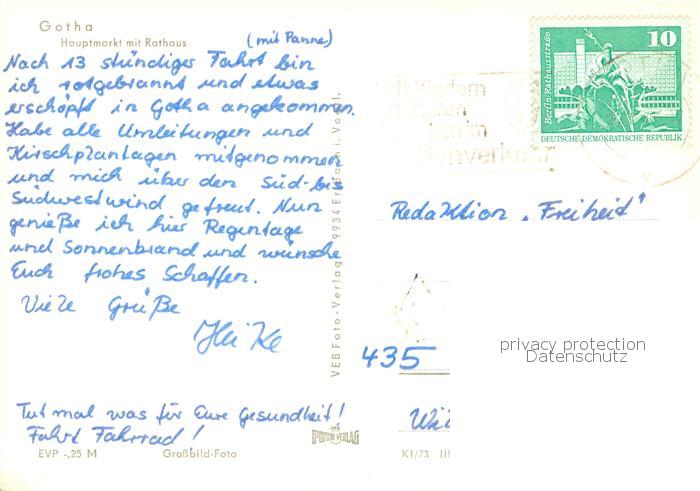 Gotha
Hauptmarkt mit Rathaus
(mit Panne)
Nach 13 stündiger Fahrt bin
ich rotgebrannt und etwas
erschöpft in Gotha angekommen.
Habe alle Umleitungen und
Kirschplantagen mitgenommen
und mich über den Süd- bis
Südwestwind gefreut. Nun
genieße ich hier Regentage
und Sonnenbrand und wünsche
Euch frohes Schaffen.
Viele Grüße
Heike
Tut mal was für Eure Gesundheit!
Fahrt Fahrrad!
EVP -,25 M Großbild-Foto
VEB Foto-Verlag 9934 i. Vogtl.
FOTO VERLAG
K1/73
10
Berlin·Rathausstraße
DEUTSCHE DEMOKRATISCHE REPUBLIK
Kindern
im
Redaktion „Freiheit"
435
Wit
privacy protection
Datenschutz